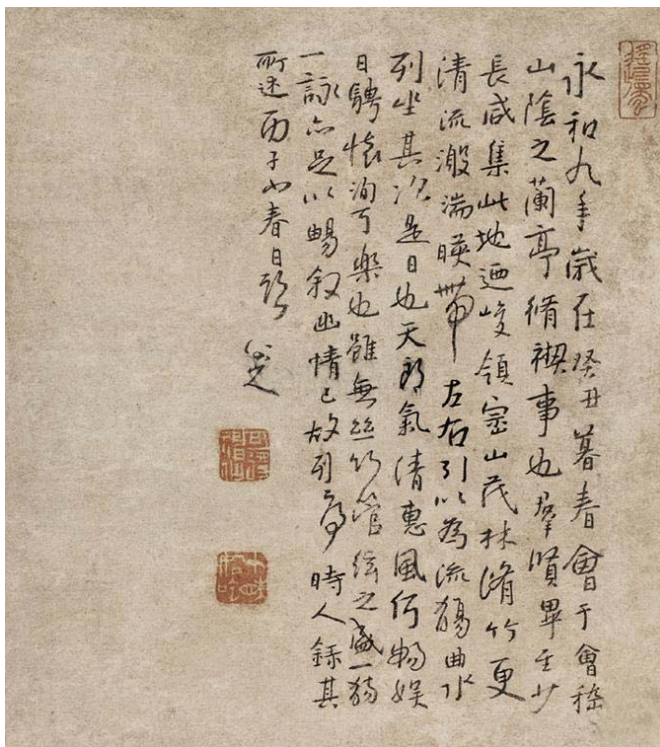 永和九年歲在癸丑暮春會于會稽
山陰之蘭亭脩禊事也羣賢畢至少
長咸集此地迺峻領崇山茂林脩竹更
清流激湍暎帶左右引以為流觴曲水
列坐其次是日也天朗氣清惠風和暢娛
目騁懷洵可樂也雖無絲竹管絃之盛一觴
一詠亦足以暢敘幽情已故列序時人錄其
所述丙子小春日題
八大山人